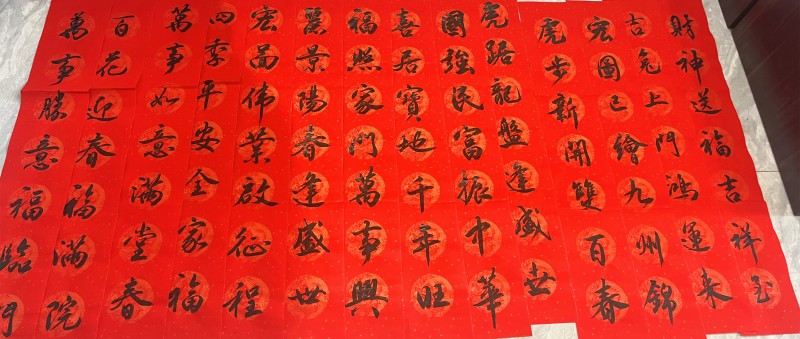 財神送福吉祥至
吉兔上門鴻運来
宏圖已繪九州錦
虎步新開雙百春
虎踞龍盤逢盛世
國強民富振中華
喜居寶地千年旺
福照家門萬事興
麗景陽春逢盛世
宏圖伟業啟征程
四季平安全家福
萬事如意滿堂春
百花迎春福滿院
萬事勝意福臨門